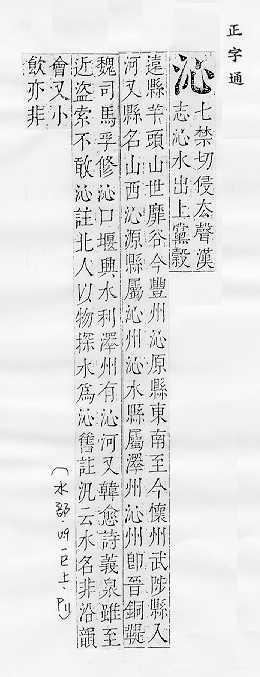 正字通
沁
七禁切侵去聲漢
志沁水出上黨穀
遠縣羊頭山世靡谷今豐州沁原縣東南至今懷州武陟縣入
河又縣名山西沁源縣屬沁州沁水縣屬澤州沁州卽晉銅鞮
魏司馬孚修沁口堰興水利澤州有沁河又韓愈詩義泉雖至
近盜索不敢沁註北人以物探水爲沁舊註汎云水名非沿韻
會又小
飲亦非
水部 巳上